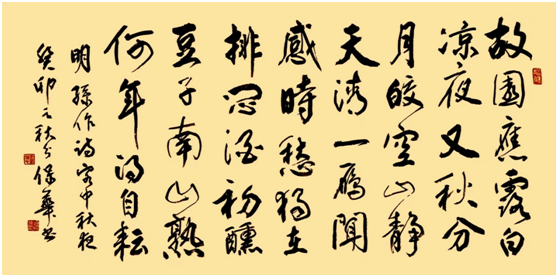 故園應露白
凉夜又秋分
月皎空山静
天清一雁聞
感時愁獨在
排悶酒初醺
豆子南山熟
何年得自耘
明孫作詩客中秋夜
癸卯之秋保華书